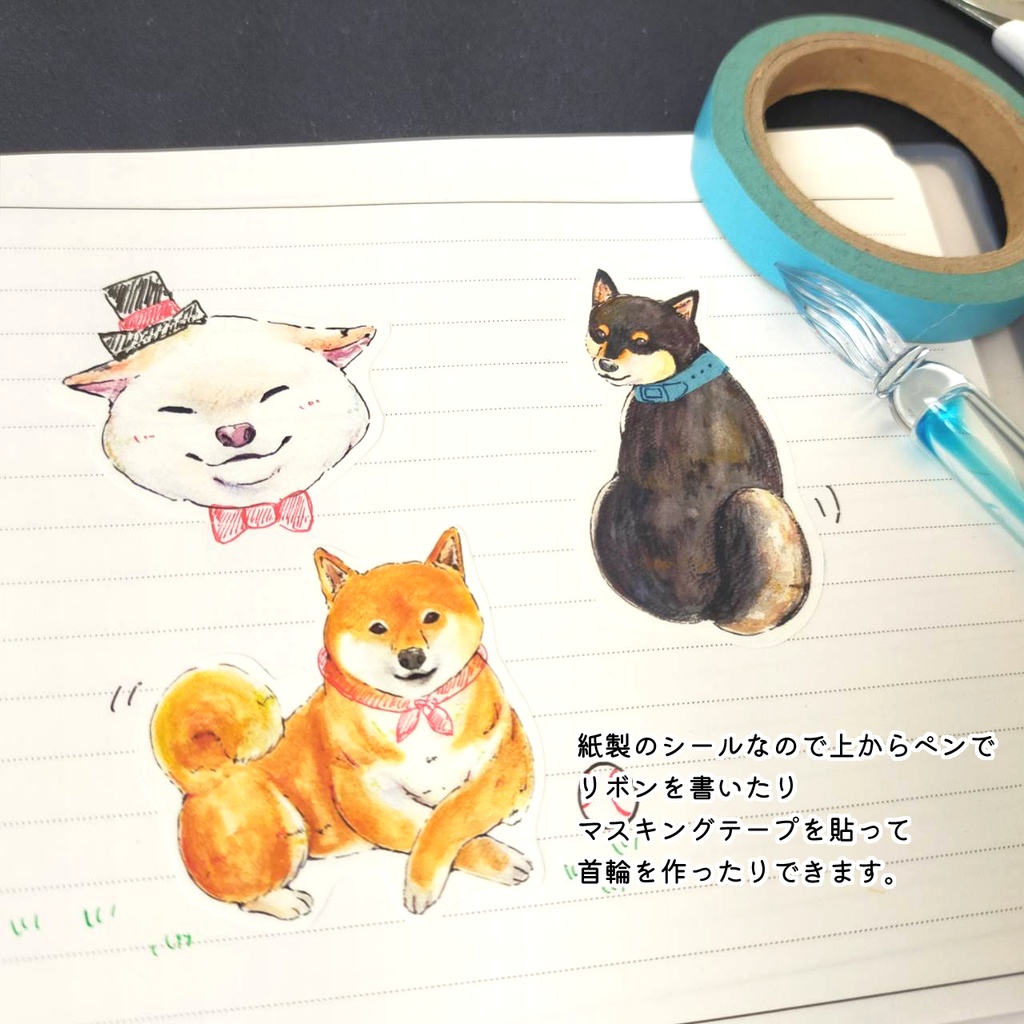 紙製のシールなので上からペンで
リボンを書いたり
マスキングテープを貼って
首輪を作ったりできます。